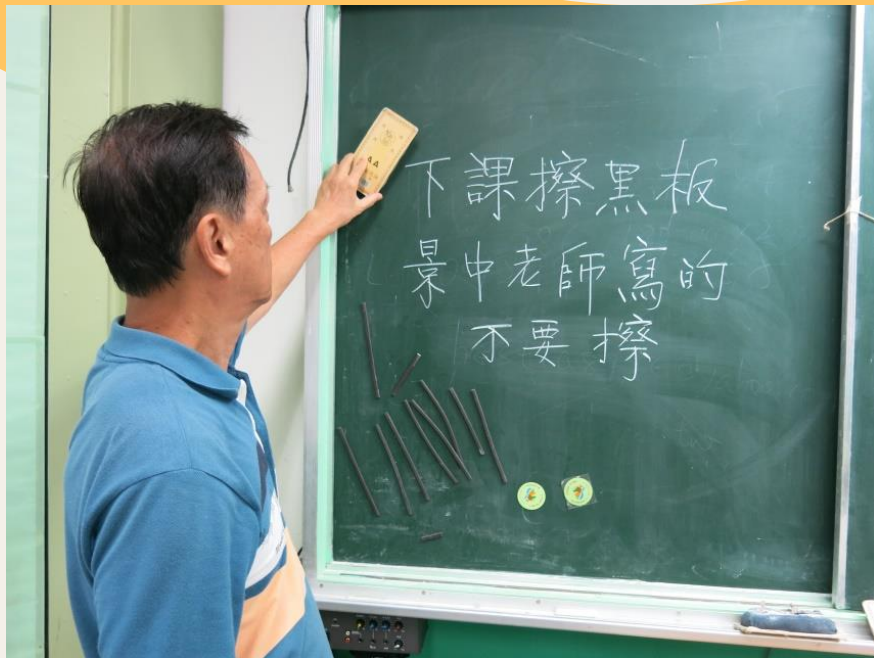 下課擦黑板
景中老師寫的
不要擦